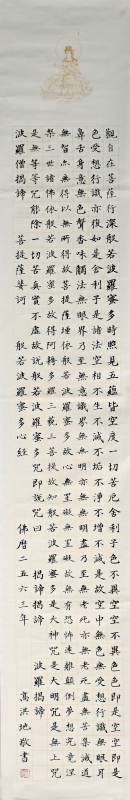 觀自在菩薩行深般若波羅蜜多時照見五蘊皆空度一切苦厄舍利子色不異空空不異色色即是空空即是
色受想行識亦復如是舍利子是諸法空相不生不滅不垢不淨不增不減是故空中無色無受想行識無眼耳
鼻舌身意無色聲香味觸法無眼界乃至無意識界無無明亦無無明盡乃至無老死亦無老死盡無苦集滅道
無智亦無得以無所得故菩提薩埵依般若波羅蜜多故心無罣礙無罣礙故無有恐怖遠離顛倒夢想究竟涅
槃三世諸佛依般若波羅蜜多故得阿耨多羅三藐三菩提故知般若波羅蜜多是大神咒是大明咒是無上咒
是無等等咒能除一切苦真實不虛故說般若波羅蜜多咒即說咒曰 揭諦揭諦 波羅揭諦
波羅僧揭諦 菩提薩婆訶 般若波羅蜜多心經 佛曆二五六三年 高洪地敬書